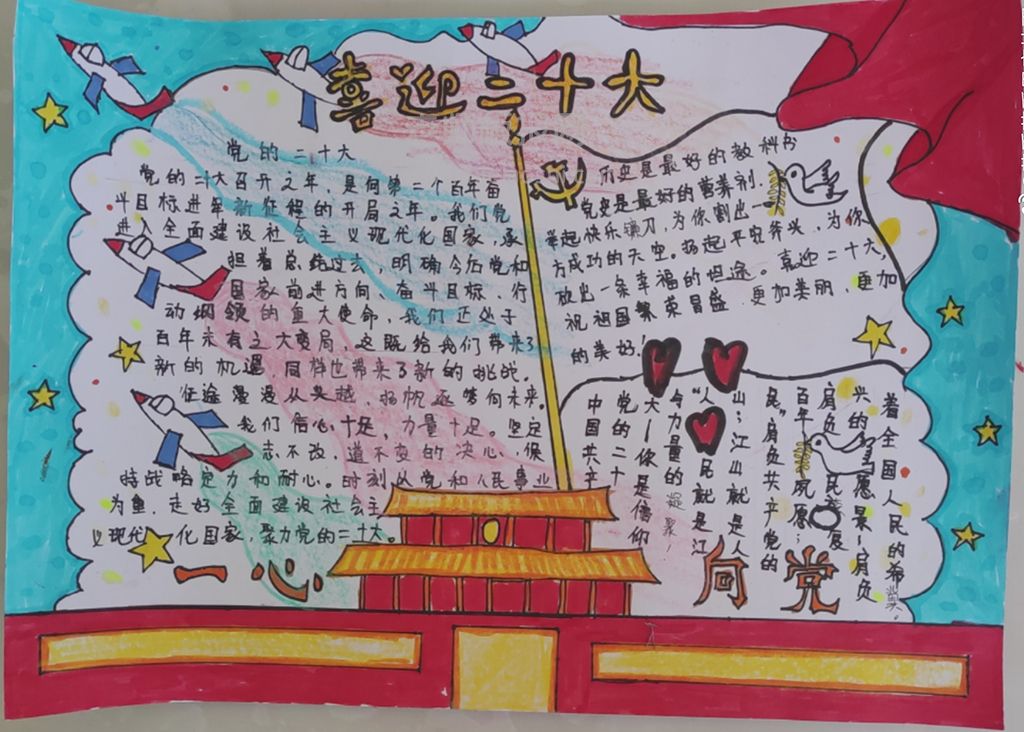 喜迎二十大
党的二十大
党的二十大召开之年，是向第二个百年奋
斗目标进军新征程的开局之年。我们党
进入全面建设社会主义现代化国家，承
担着总结过去，明确今后党和
国家前进方向、奋斗目标、行
动纲领的重大使命，我们正处于
百年未有之大变局，这既给我们带来了
新的机遇 同样也带来了新的挑战。
征途漫漫从头越，扬帆逐梦向未来。
我们信心十足，力量十足。坚定
志不改，道不变的决心，保
持战略定力和耐心。时刻以党和人民事业
为重，走好全面建设社会主
义现代化国家，聚力党的二十大。
历史是最好的教科书
党史是最好的营养剂.
举起快乐镰刀，为你割出一
方成功的天空。扬起平安斧头，为你
放出一条幸福的坦途。喜迎二十大
祝祖国繁荣昌盛 更加美丽，更加
的美好！
着全国人民的希
兴的 愿景~肩负
肩负 民 展
百年 夙愿；
民”肩负共产党的
山；江山就是人
“人民就是江
与力量的 聚！
大~你是信仰
党的二十
中国共产
一心向党